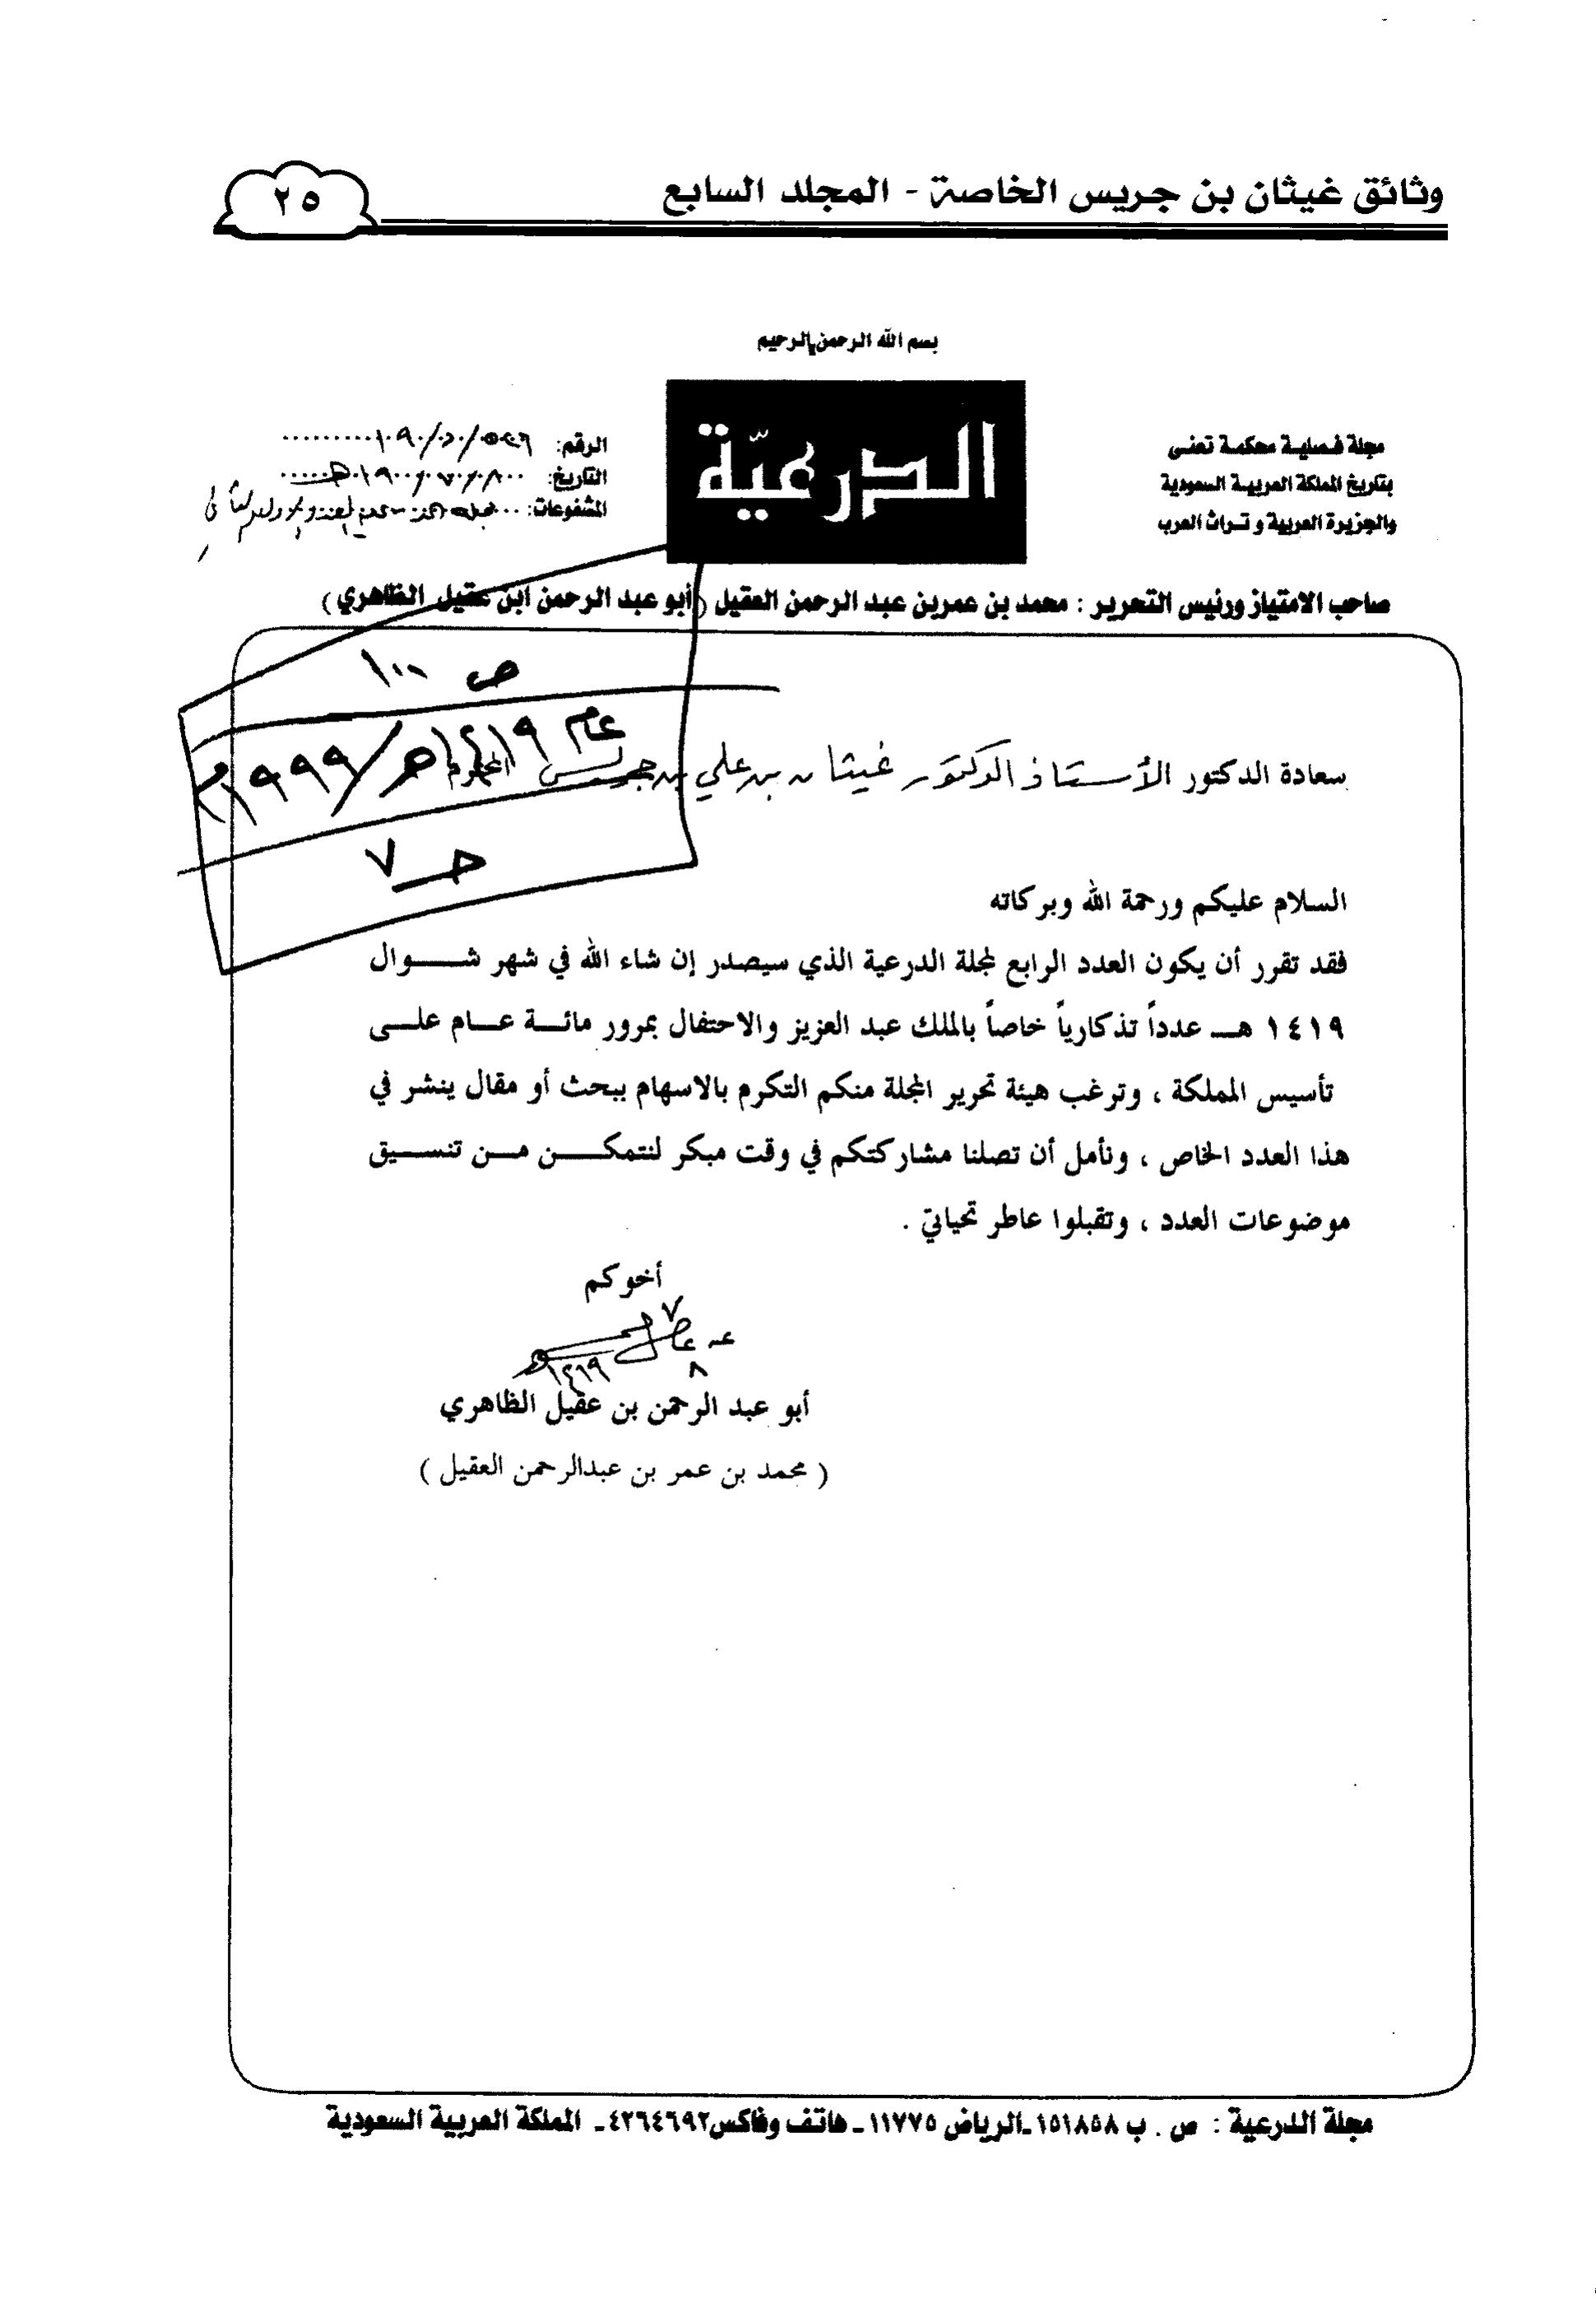 وثائق غيثان بن جريس الخاصة - المجلد السابع
٢٥
بسم الله الرحمن الرحيم
الدرعيّة
مجلة فصلية محكمة تعنى
بتاريخ المملكة العربية السعودية
والجزيرة العربية وتراث العرب
الرقم:
التاريخ:
المشفوعات:
صاحب الامتياز ورئيس التحرير : محمد بن عمر بن عبد الرحمن العقيل (أبو عبد الرحمن ابن عقيل الظاهري)
ص ١٠٠
عام ١٤١٩هـ/١٩٩٩م
جـ٧
سعادة الدكتور الأستاذ الدكتور غيثان بن علي بن جريس
السلام عليكم ورحمة الله وبركاته
فقد تقرر أن يكون العدد الرابع لمجلة الدرعية الذي سيصدر إن شاء الله في شهر شـــوال
١٤١٩ هــ عدداً تذكارياً خاصاً بالملك عبد العزيز والاحتفال بمرور مائـــة عـــام علـــى
تأسيس المملكة ، وترغب هيئة تحرير المجلة منكم التكرم بالاسهام ببحث أو مقال ينشر في
هذا العدد الخاص ، ونأمل أن تصلنا مشاركتكم في وقت مبكر لنتمكـــن مـــن تنســـيق
موضوعات العدد ، وتقبلوا عاطر تحياتي .
أخوكم
أبو عبد الرحمن بن عقيل الظاهري
( محمد بن عمر بن عبدالرحمن العقيل )
مجلة الدرعية : ص . ب ١٥١٨٥٨ ـ الرياض ١١٧٧٥ ـ هاتف وفاكس ٤٢٦٤٦٩٢ ـ المملكة العربية السعودية